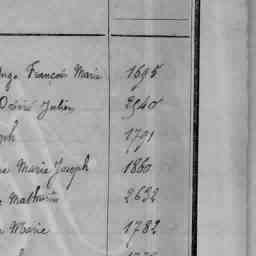 Ange François Marie 1695
Désiré Julien 3940
ph 1791
ne Marie Joseph 1860
Mathurin 2632
Marie 1782